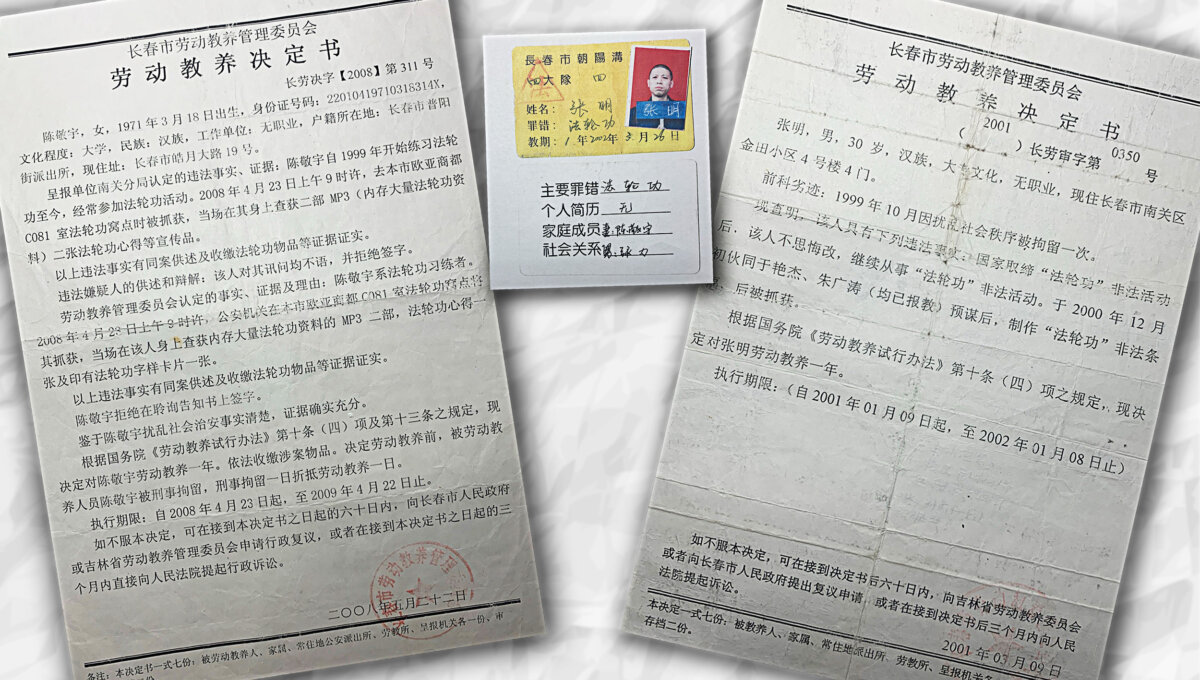 长春市劳动教养管理委员会
劳动教养决定书
长劳决字【2008】第 311 号
陈敬宇，女，1971 年 3 月 18 日出生，身份证号码：22010419710318314X，
文化程度：大学，民族：汉族，工作单位：无职业，户籍所在地：长春市普阳
街派出所，现住址：长春市皓月大路 19 号。
呈报单位南关分局认定的违法事实、证据：陈敬宇自 1999 年开始练习法轮
功至今，经常参加法轮功活动。2008 年 4 月 23 日上午 9 时许，去本市欧亚商都
C081 室法轮功窝点时被抓获，当场在其身上查获二部 MP3（内存大量法轮功资
料）二张法轮功心得等宣传品。
以上违法事实有同案供述及收缴法轮功物品等证据证实。
违法嫌疑人的供述和辩解：该人对其讯问均不语，并拒绝签字。
劳动教养管理委员会认定的事实、证据及理由：陈敬宇系法轮功习练者。
2008 年 4 月 23 日上午 9 时许，公安机关在本市欧亚商都 C081 室法轮功窝点将
其抓获，当场在该人身上查获内存大量法轮功资料的 MP3 二部，法轮功心得一
张及印有法轮功字样卡片一张。
以上违法事实有同案供述及收缴法轮功物品等证据证实。
陈敬宇拒绝在聆询告知书上签字。
鉴于陈敬宇扰乱社会治安事实清楚，证据确实充分。
根据国务院《劳动教养试行办法》第十条（四）项及第十三条之规定，现
决定对陈敬宇劳动教养一年。依法收缴涉案物品。决定劳动教养前，被劳动教
养人员陈敬宇被刑事拘留，刑事拘留一日折抵劳动教养一日。
执行期限：自 2008 年 4 月 23 日起，至 2009 年 4 月 22 日止。
如不服本决定，可在接到本决定书之日起的六十日内，向长春市人民政府
或吉林省劳动教养管理委员会申请行政复议，或者在接到本决定书之日起的三
个月内直接向人民法院提起行政诉讼。
二〇〇八年五月二十二日
备注：本决定书一式七份：被劳动教养人、家属、常住地公安派出所、劳教所、呈报机关各一份、审
長春市朝陽溝
四大隊 四
姓名：张明
罪错：法轮功
教期：1 年2002年 3 月 26 日
张 明
主要罪错 法轮功
个人简历 无
家庭成员 陈敬宇
社会关系 张力
长春市劳动教养管理委员会
劳动教养决定书
（2001）长劳审字第 0350 号
张明，男，30 岁，汉族，大专文化，无职业，现住长春市南关区
金田小区 4 号楼 4 门。
前科劣迹：1999 年 10 月因扰乱社会秩序被拘留一次。
现查明，该人具有下列违法事实：国家取缔“法轮功”非法活动
后．该人不思悔改，继续从事“法轮功”非法活动。于 2000 年 12 月
初伙同于艳杰、朱广涛（均已报教）预谋后，制作“法轮功”非法条
，后被抓获。
根据国务院《劳动教养试行办法》第十条（四）项之规定，现决
定对张明劳动教养一年。
执行期限：（自 2001 年 01 月 09 日起，至 2002 年 01 月 08 日止）
如不服本决定，可在接到决定书后六十日内，向吉林省劳动教养委员会
或者向长春市人民政府提出复议申请 或者在接到决定书后三个月内向人民
法院提起诉讼。
2001 年 03 月 09 日
本决定一式七份：被教养人、家属、常住地派出所、劳教所、呈报机关
存档二份。